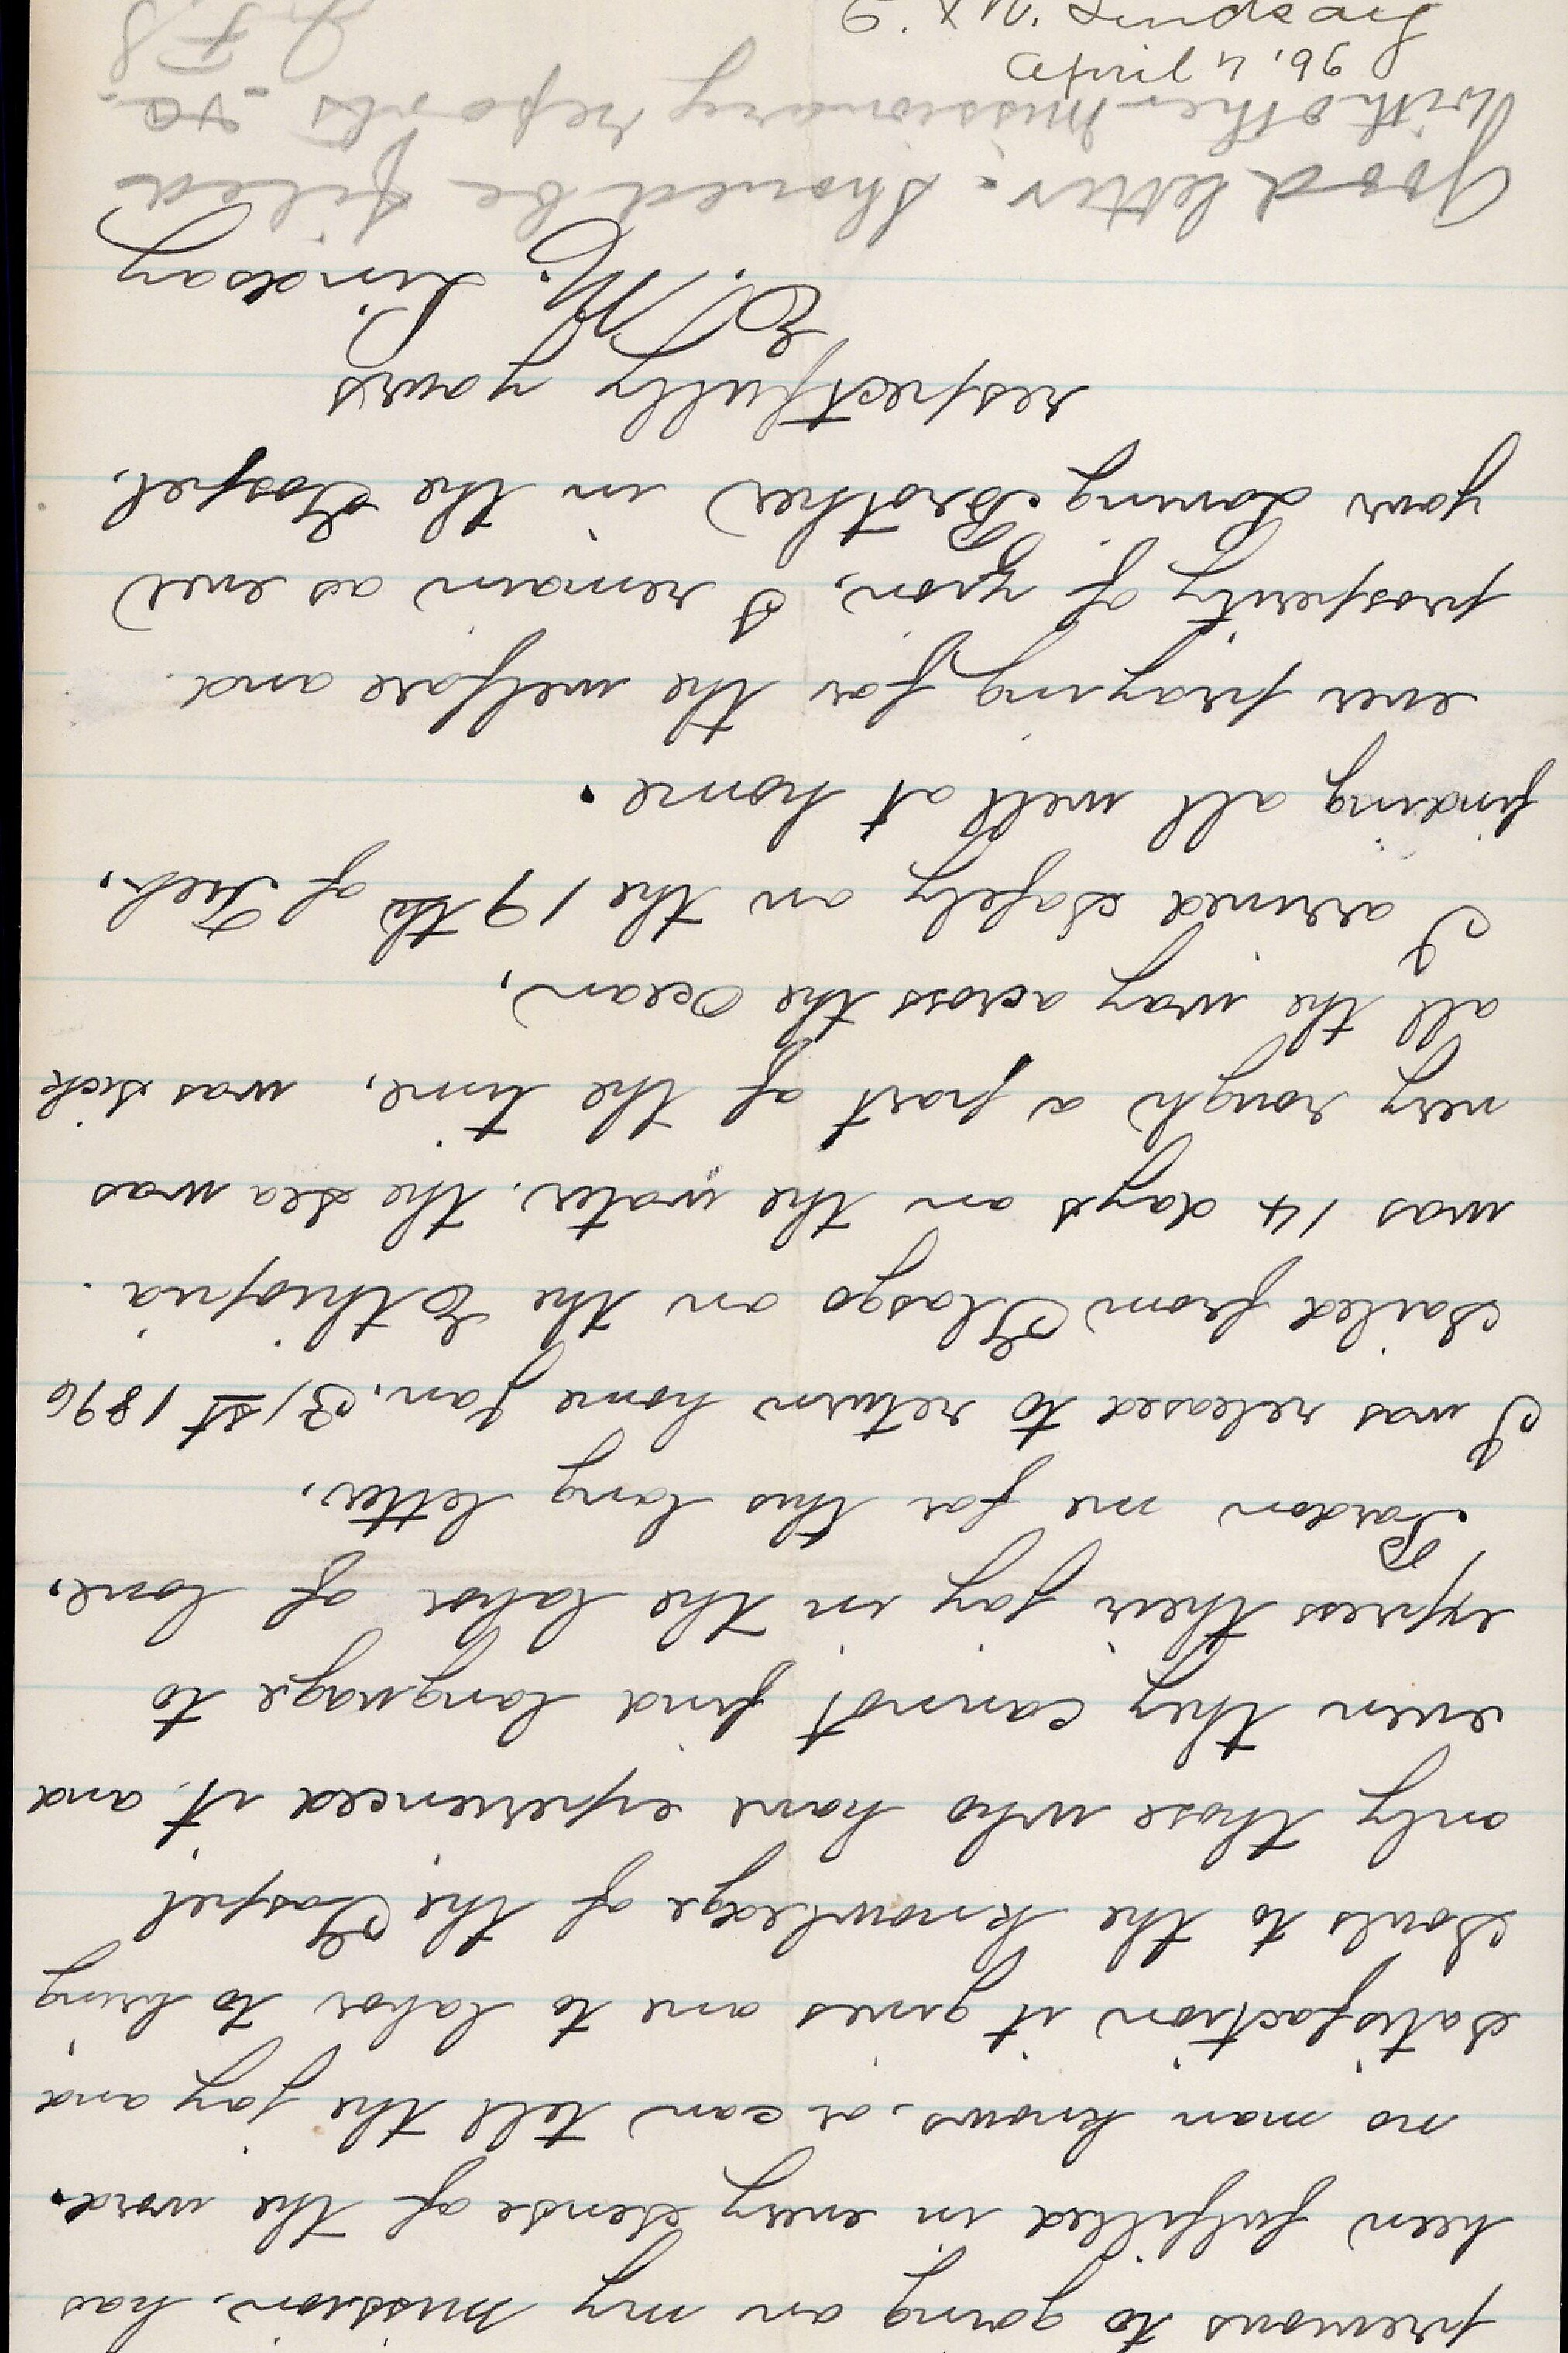 previous to going on my mission, has
been fulfilled in every sense of the word.
no man knows, or can tell the joy and
satisfaction it gives one to labor to bring
Souls to the knowledge of the Gospel
only those who have experienced it, and
even they cannot find language to
express their joy in the labor of love.
Pardon me for this long letter.
I was released to return home Jan. 31st 1896
Sailed from Glasgo on the Ethiopia.
was 14 days on the water. the sea was
very rough a part of the time, was sick
all the way across the Ocean,
I arrived safely on the 19th of Feb.,
finding all well at home.
ever praying for the welfare and
prosperity of Zion, I remain as ever
your Loving Brother in the Gospel.
respectfully yours
E. M. Lindsay
Good letter. Should be filed
with other missionary reports
J F S
Lindsay
April 4, '96